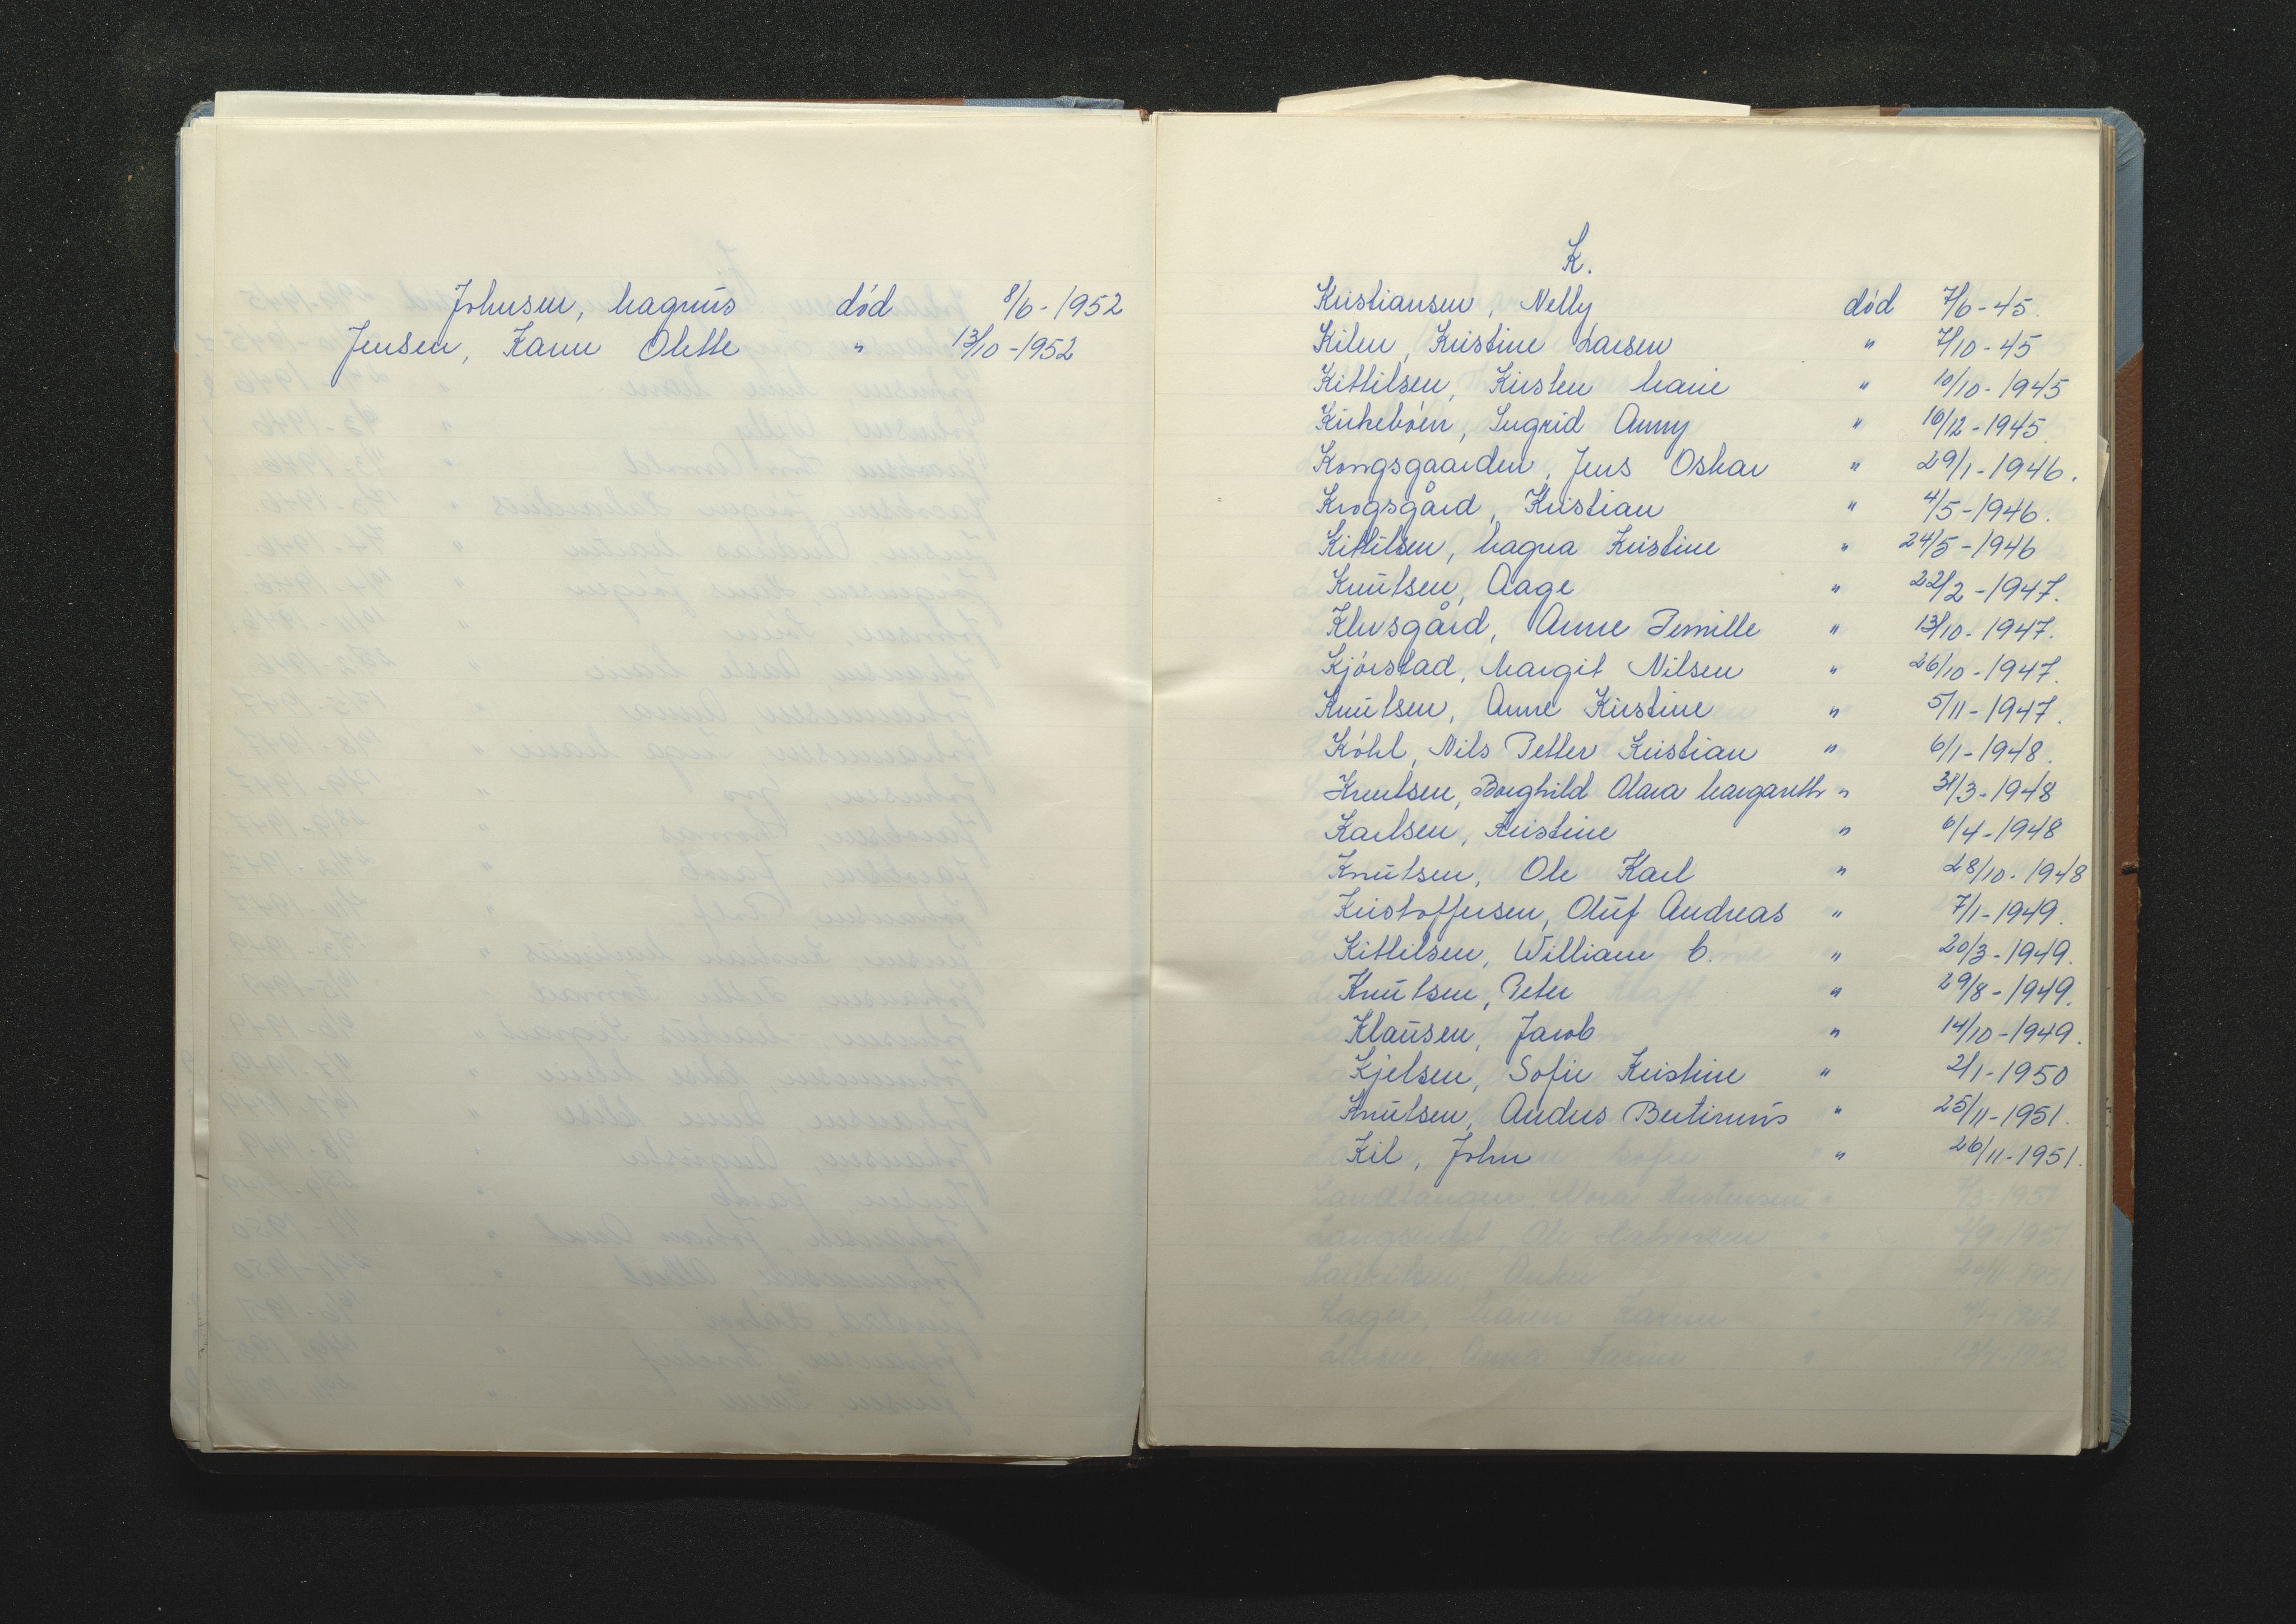 Johnsen, Magnus død 8/6-1952
Jensen, Karen Olette " 13/10-1952
K.
Kristiansen, Nelly død 7/6-45.
Kilen, Kristine Larsen " 7/10-45
Kittilsen, Kirsten Marie " 10/10-1945
Kirkebøen, Ingrid Anny " 16/12-1945.
Kongsgaarden, Jens Oskar " 29/1-1946.
Krogsgård, Kristian " 4/5-1946.
Kittilsen, Magna Kristine " 24/5-1946
Knutsen, Aage " 22/2-1947.
Klevsgård, Anne Pernille " 13/10-1947.
Kjørstad, Margit Nilsen " 26/10-1947.
Knutsen, Anne Kirstine " 5/11-1947.
Køhl, Nils Petter Kristian " 6/1-1948.
Knutsen, Borghild Olava Margarethe " 31/3-1948
Karlsen, Kristine " 6/4-1948
Knutsen, Ole Karl " 28/10-1948
Kristoffersen, Oluf Andreas " 7/1-1949.
Kittilsen, William C. " 20/3-1949.
Knutsen, Peter " 29/8-1949.
Klausen, Jacob " 14/10-1949.
Kjelsen, Sofie Kristine " 2/1-1950
Knutsen, Anders Bertinius " 25/11-1951.
Kil, John " 26/11-1951.